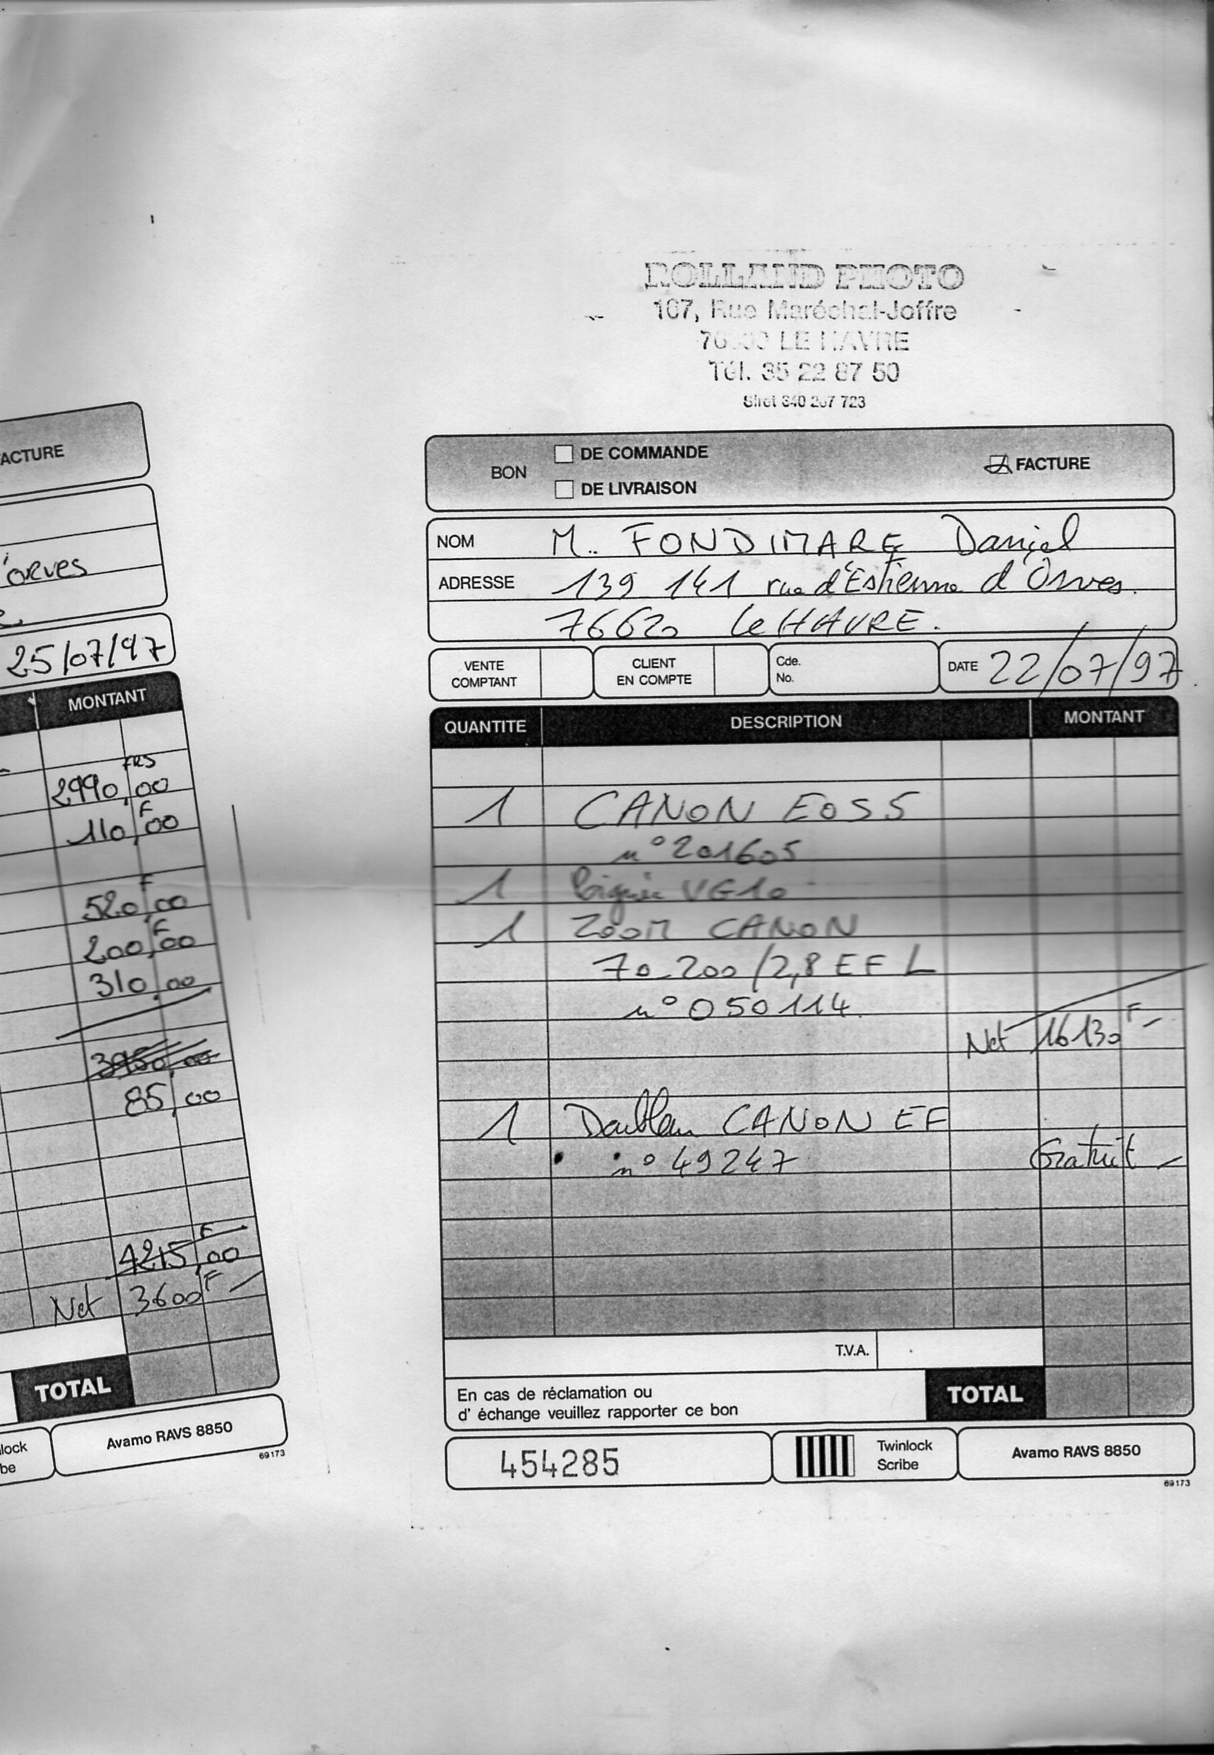 ACTURE
25/07/97
MONTANT
FRS
2990,00
F
110,00
F
520,00
F
200,00
310,00
3950,00
85,00
F
4215,00
Net 3600 F
TOTAL
Avamo RAVS 8850
69173
ROLLAND PHOTO
107, Rue Maréchal-Joffre
LE HAVRE
Tél. 35 22 87 50
Siret 340 267 723
BON
DE COMMANDE
DE LIVRAISON
FACTURE
NOM M. FONDIMARE Daniel
ADRESSE 139 141 rue d'Estienne d'Orves
76620 Le HAVRE.
VENTE COMPTANT
CLIENT EN COMPTE
Cde. No.
DATE 22/07/97
QUANTITE DESCRIPTION MONTANT
1 CANON EOS 5
n° 201605
1 Poignée VG10
1 Zoom CANON
70-200/2,8 EF L
n° 050114
Net 16130 F
1 Doubleur CANON EF
n° 49247 Gratuit
T.V.A.
En cas de réclamation ou
d' échange veuillez rapporter ce bon
TOTAL
454285
Twinlock
Scribe
Avamo RAVS 8850
69173